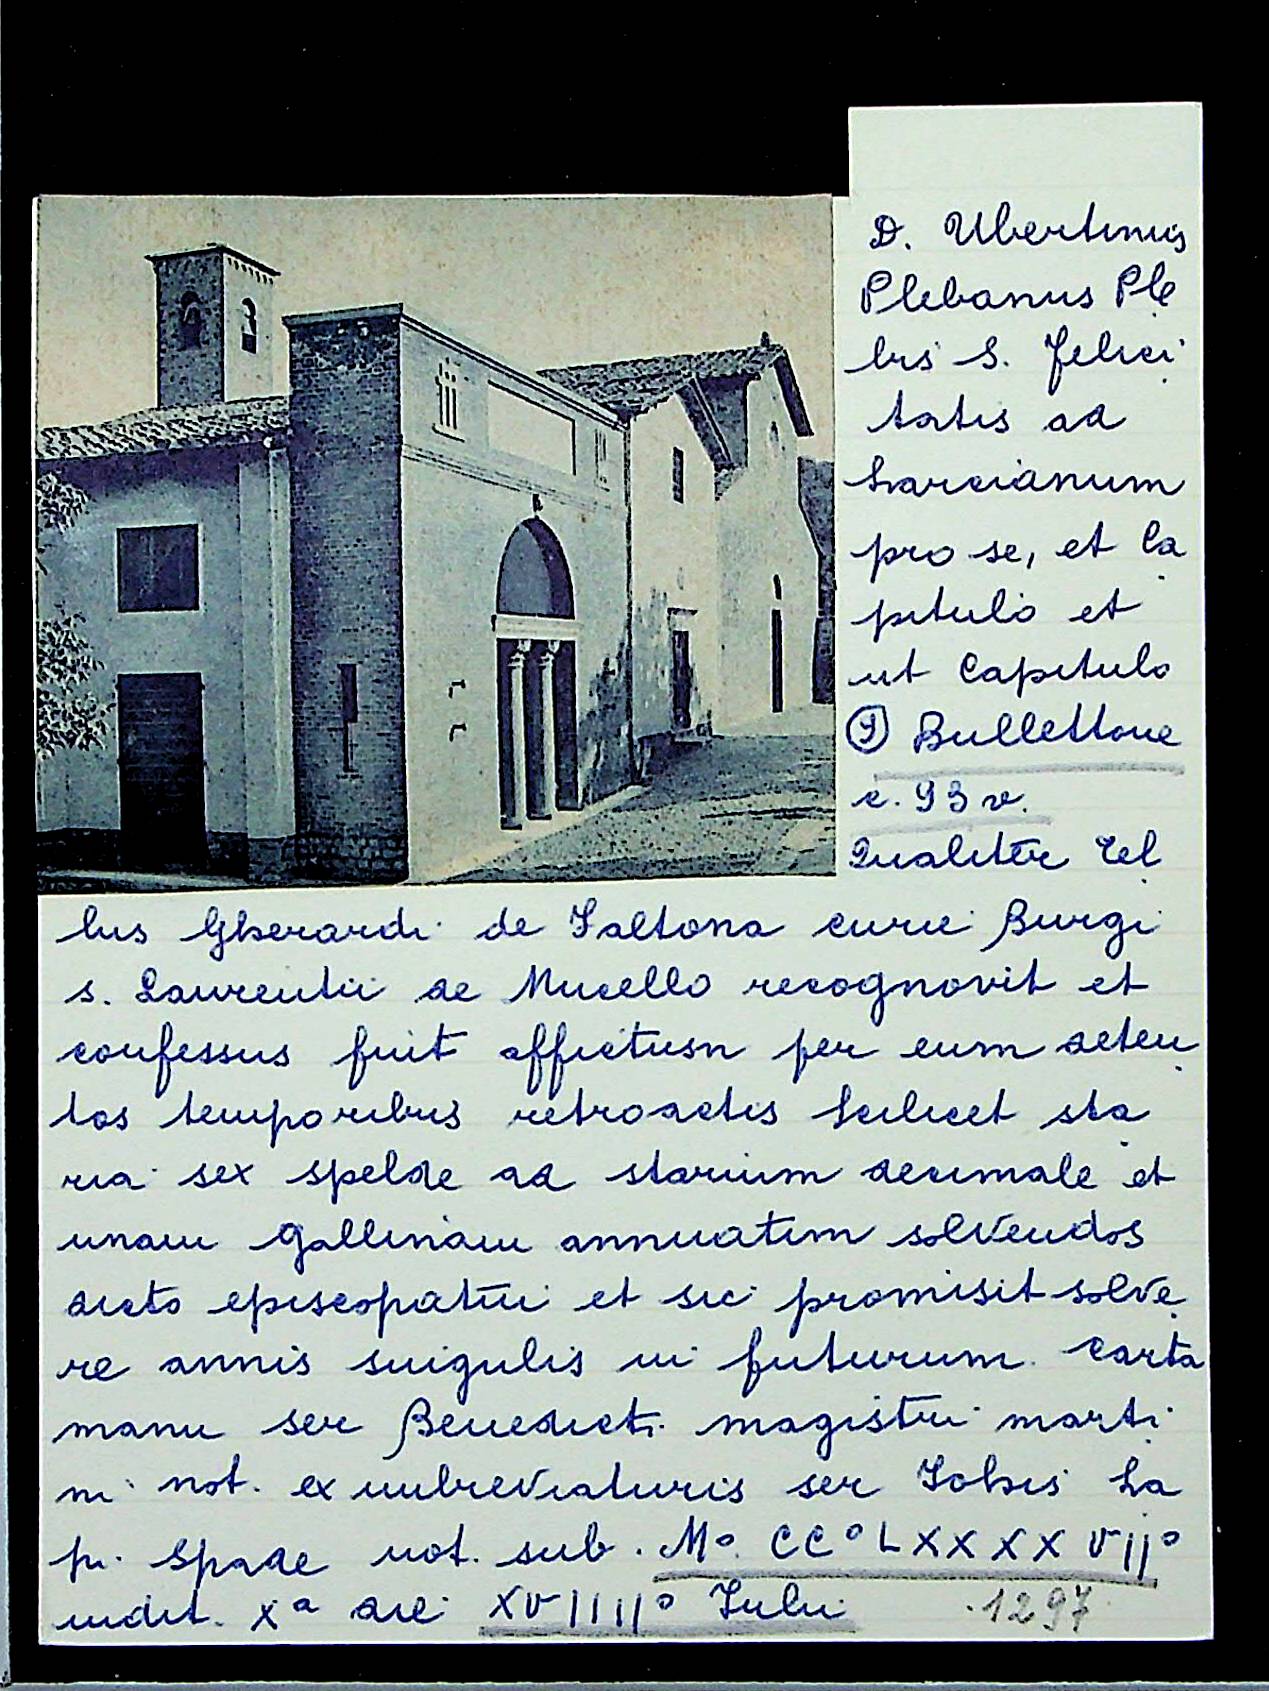 D. Ubertinus
Plebanus Ple
bis S. Felici
tatis ad
Larcianum
pro se, et Ca
pitulo et
ut Capitulo
9 Bullettone
c. 93 v.
Qualiter Tel
lus Gherardi de Faltona curie Burgi
s. Laurentii de Mucello recognovit et
confessus fuit affictusn per eum deten
tos temporibus retroactis scilicet sta
ria sex spelde ad starium decimale et
unam gallinam annuatim solvendos
dicto episcopatui et sic promisit solve
re annis singulis in futurum. Carta
manu ser Benedicti magistri marti
ni not. ex imbreviaturis ser Iohis La
pi Spade not. sub. Mº. CCº LXXXX VIIº
indit. Xª die XVIIIIº Iulii 1297